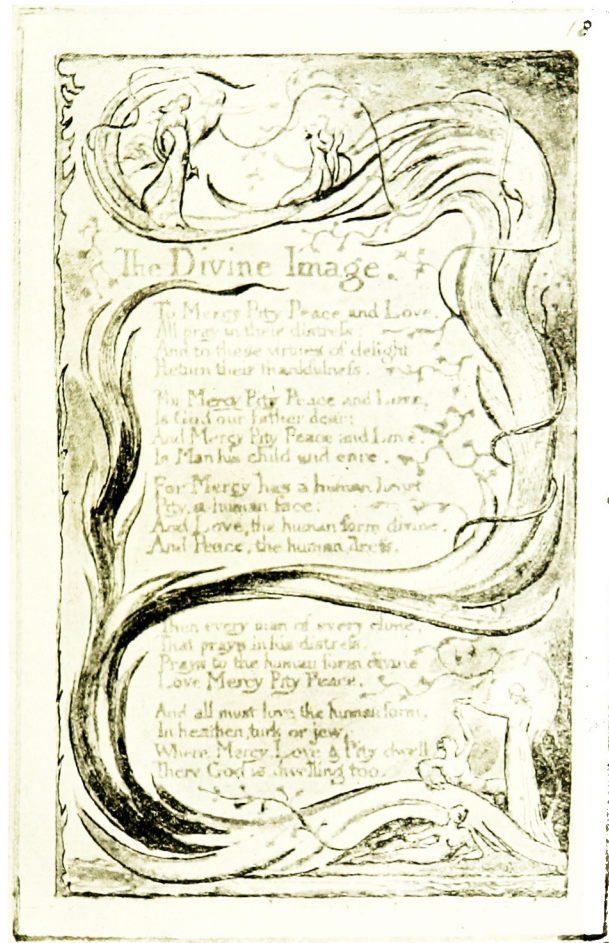 18
The Divine Image.
To Mercy Pity Peace and Love,
All pray in their distress:
And to these virtues of delight
Return their thankfulness.
For Mercy Pity Peace and Love,
Is God our father dear:
And Mercy Pity Peace and Love,
Is Man his child and care.
For Mercy has a human heart
Pity, a human face:
And Love, the human form divine,
And Peace, the human dress.
Then every man of every clime,
That prays in his distress,
Prays to the human form divine
Love Mercy Pity Peace.
And all must love the human form,
In heathen, turk or jew,
Where Mercy, Love & Pity dwell
There God is dwelling too.